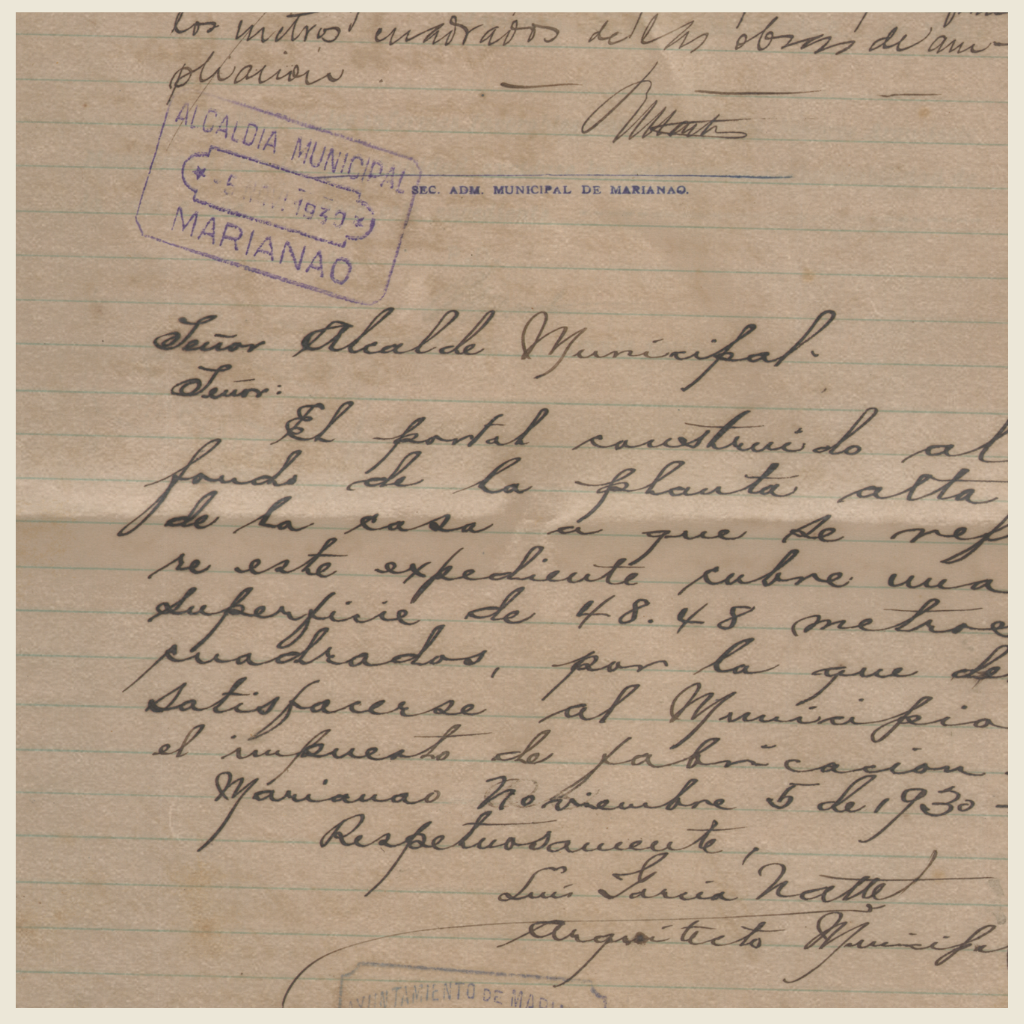 los metros cuadrados de las obras de am-
pliación.
ALCALDIA MUNICIPAL
5 1930
MARIANAO
SEC. ADM. MUNICIPAL DE MARIANAO.
Señor Alcalde Municipal.
Señor:
El portal construido al
fondo de la planta alta
de la casa a que se ref
re este expediente cubre una
superficie de 48.48 metros
cuadrados, por lo que de
satisfacerse al Municipio
el impuesto de fabricacion.
Marianao Noviembre 5 de 1930-
Respetuosamente,
Luis Garcia Natte
Arquitecto Municipal
AYUNTAMIENTO DE MARI